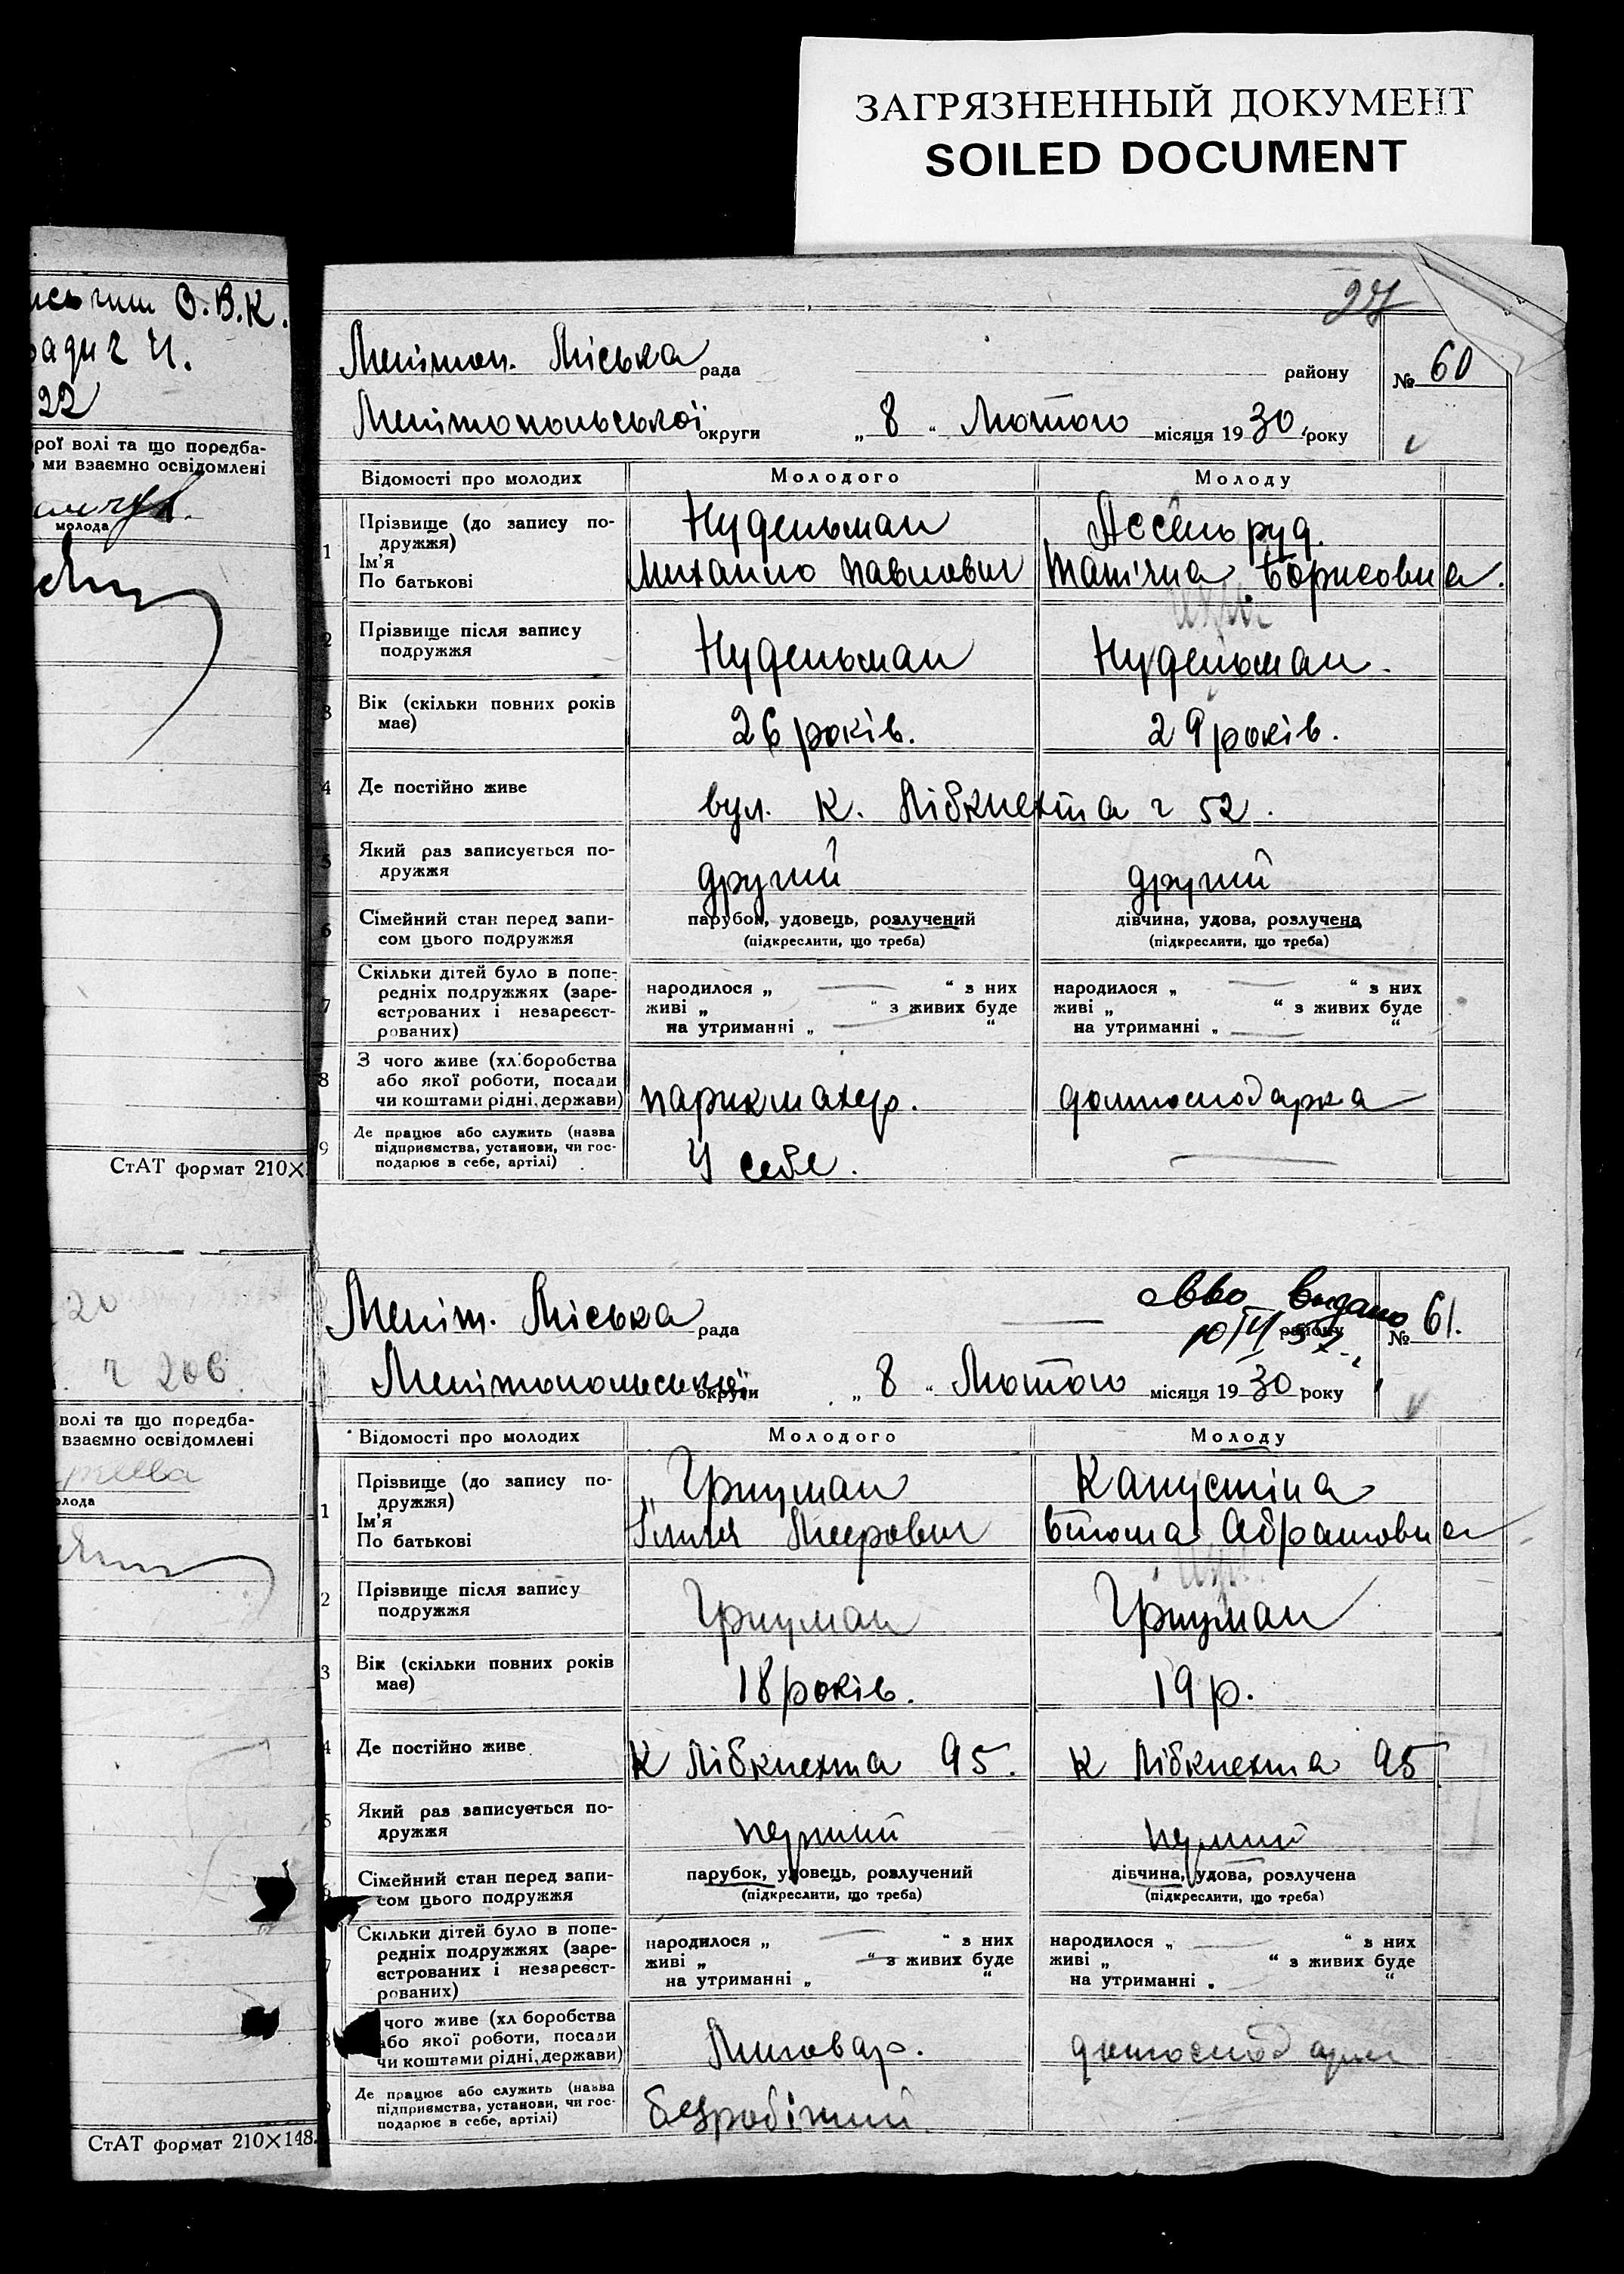 ЗАГРЯЗНЕННЫЙ ДОКУМЕНТ
SOILED DOCUMENT
О.В.К.
22
рої волі та що поредба-
ми взаємно освідомлені
молода
СтАТ формат 210×
20
г 206.
волі та що поредба-
взаємно освідомлені
олода
СтАТ формат 210×148.
27
Мелітоп. Міська рада району № 60
Мелітопольської округи „ 8 “ Лютого місяця 1930 року
Відомості про молодих Молодого Молоду
1 Прізвище (до запису по-дружжя) Нудельман
Ім'я
По батькові Михайло Павлович Татіяна Борисовна.
2 Прізвище після запису подружжя Нудельман Нудельман.
3 Вік (скільки повних років має) 26 років. 29 років.
4 Де постійно живе вул. К. Лібкнехта г 52.
5 Який раз записується по-дружжя другий другий
6 Сімейний стан перед запи-сом цього подружжя парубок, удовець, розлучений дівчина, удова, розлучена
(підкреслити, що треба) (підкреслити, що треба)
7 Скільки дітей було в попе-редніх подружжях (заре-єстрованих і незареєст-рованих) народилося „ — “ з них народилося „ — “ з них
живі „ “ з живих буде живі „ “ з живих буде
на утриманні „ — “ на утриманні „ — “
8 З чого живе (хл:боробства або якої роботи, посади чи коштами рідні, держави) парикмахер. домгосподарка
9 Де працює або служить (назва підприємства, установи, чи гос-подарює в себе, артілі) У себе. —
Меліт. Міська рада — району № 61.
видано
Мелітопольської округи „ 8 “ Лютого місяця 1930 року
Відомості про молодих Молодого Молоду
1 Прізвище (до запису по-дружжя) Грицман Капустіна
Ім'я
По батькові Меерович Абрамовна
2 Прізвище після запису подружжя Грицман Грицман
3 Вік (скільки повних років має) 18 років. 19 р.
4 Де постійно живе К Лібкнехта 95. К Лібкнехта 95
5 Який раз записується по-дружжя перший перший
Сімейний стан перед запи-сом цього подружжя парубок, удовець, розлучений дівчина, удова, розлучена
(підкреслити, що треба) (підкреслити, що треба)
7 Скільки дітей було в попе-редніх подружжях (заре-єстрованих і незареєст-рованих) народилося „ — “ з них народилося „ — “ з них
живі „ — “ з живих буде живі „ “ з живих буде
на утриманні „ “ на утриманні „ “
чого живе (хл боробства або якої роботи, посади чи коштами рідні, держави) Миловар. домогосподарка
Де працює або служить (назва підприємства, установи, чи гос-подарює в себе, артілі) безробітний